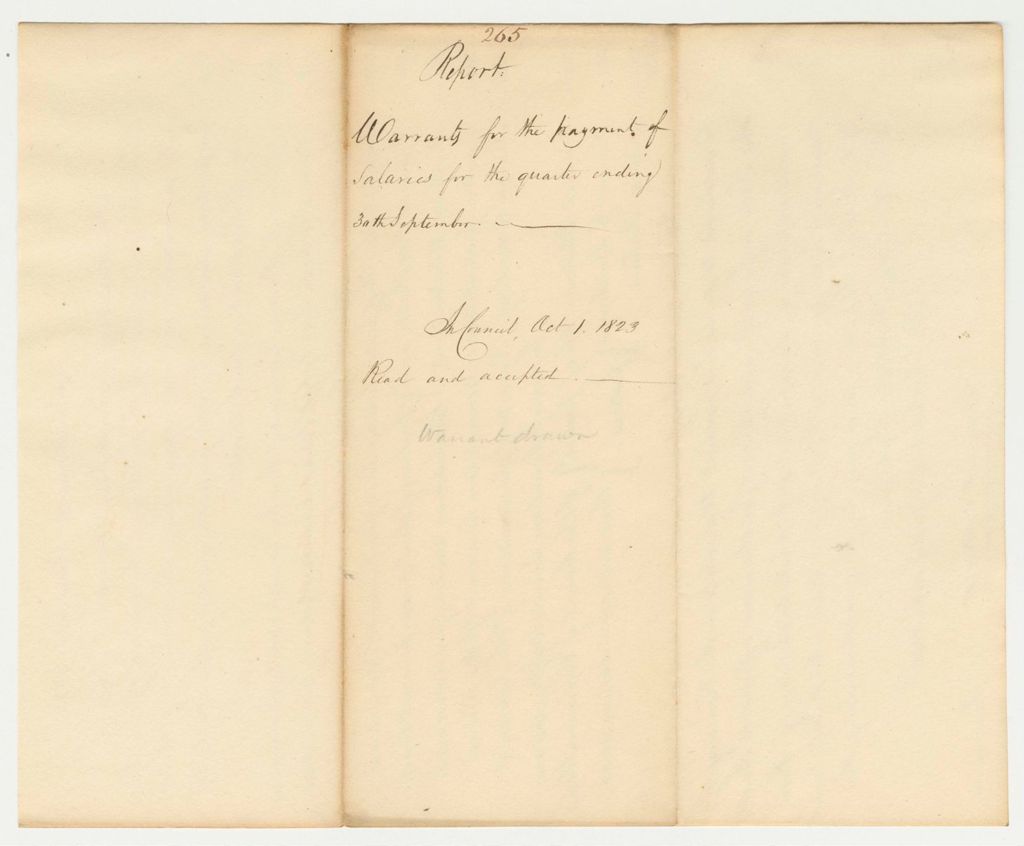 265
Report.
Warrants for the payment of
Salaries for the quarter ending
30th September.
In Council, Oct 1. 1823
Read and accepted.
Warrant drawn